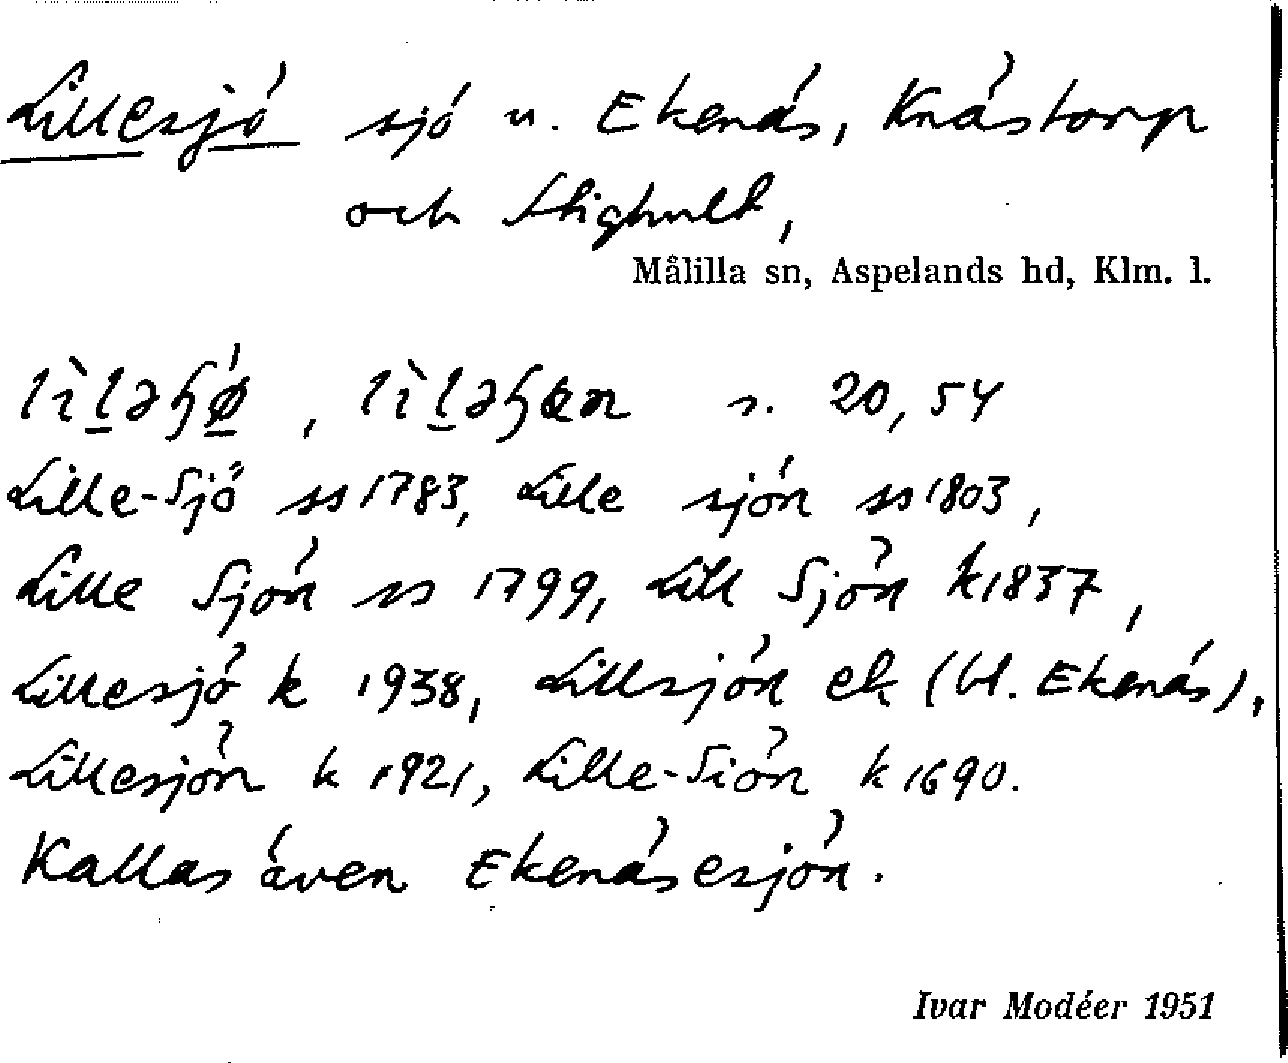 Lillesjö sjö u. Ekenäs, Knästorp
och Stighult,
Målilla sn, Aspelands hd, Klm. l.
lìləɧǿ, lìləɧœn s. 20, 54
Lille-Sjö ss 1783, Lille sjön ss 1803,
Lille Sjön ss 1799, Lill Sjön k 1837,
Lillesjö k 1938, Lillsjön ek (bl. Ekenäs),
Lillesjön k 1921, Lille-Siön k 1690.
Kallas även Ekenäsesjön.
Ivar Modéer 1951